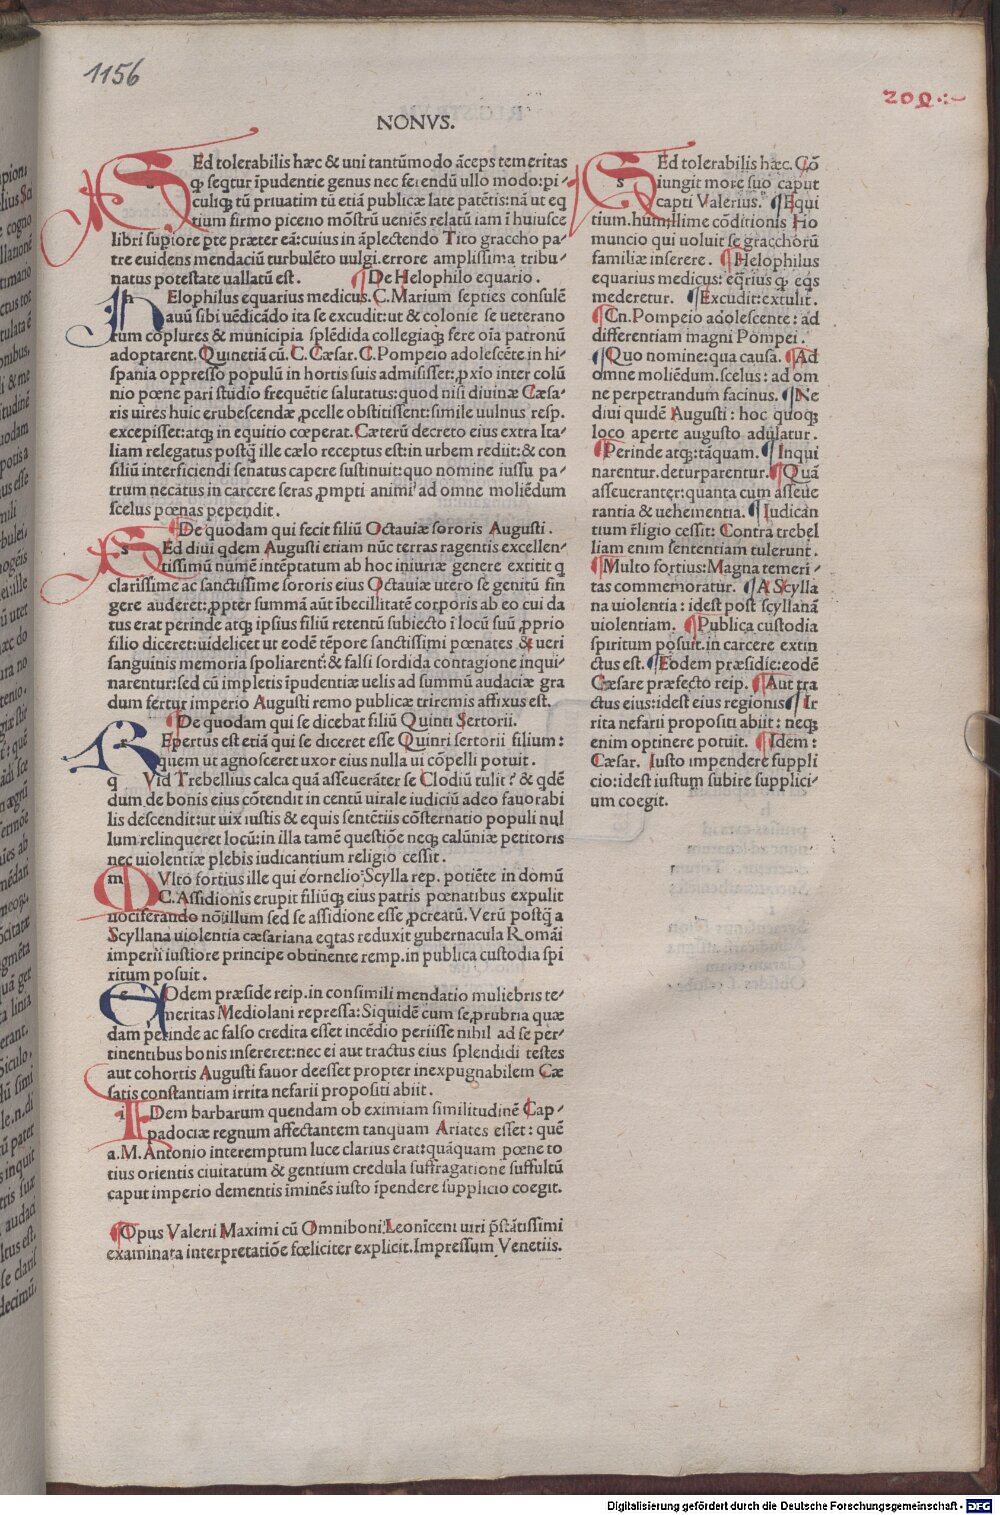 1156
209.:~
NONVS.
SEd tolerabilis hæc & uni tantūmodo āceps temeritas
ꝙ seqtur īpudentie genus nec ferendū ullo modo:pi-
culiqꝫ tū priuatim tū etiā publicæ late patētis:nā ut eq
tium firmo piceno mōstrū ueniēs relatū iam ī huiusce
libri supiore pte præter eā:cuius in āplectendo Tito graccho pa-
tre euidens mendaciū turbulēto uulgi.errore amplissima tribu-
natus potestate uallatū est. ¶De Helophilo equario.
HElophilus equarius medicus.C.Marium septies consulē
auū sibi uēdicādo ita se excudit:ut & colonie se ueterano
rum coplures & municipia splēdida collegiaqꝫ fere oīa patronū
adoptarent.Quinetiā cū.C.Cæsar.C.Pompeio adolescēte in hi-
spania oppresso populū in hortis suis admisisset:ꝓxio inter colū
nio pœne pari studio frequētie salutatus:quod nisi diuinæ Cæsa-
ris uires huic erubescendæ ꝓcelle obstitissent:simile uulnus resp.
excepisset:atqꝫ in equitio cœperat.Cæterū decreto eius extra Ita-
liam relegatus postꝗ̄ ille cælo receptus est:in urbem rediit:& con
siliū interficiendi senatus capere sustinuit:quo nomine iussu pa-
trum necatus in carcere seras ꝓmpti animi ad omne moliēdum
scelus pœnas pependit.
¶De quodam qui fecit filiū Octauiæ sororis Augusti.
SEd diui qdem Augusti etiam nūc terras ragentis excellen-
tissimū numē intēptatum ab hoc iniuriæ genere extitit q
clarissime ac sanctissime sororis eius Octauiæ utero se genitū fin
gere auderet:ꝓpter summā aūt ībecillitatē corporis ab eo cui da
tus erat perinde atqꝫ ipsius filiū retentū subiecto ī locū suū ꝓprio
filio diceret:uidelicet ut eodē tēpore sanctissimi pœnates & ueri
sanguinis memoria spoliarent:& falsi sordida contagione inqui-
narentur:sed cū impletis īpudentiæ uelis ad summū audaciæ gra
dum fertur imperio Augusti remo publicæ triremis affixus est.
¶De quodam qui se dicebat filiū Quinti Sertorii.
REpertus est etiā qui se diceret esse Quinri sertorii filium:
quem ut agnosceret uxor eius nulla ui cōpelli potuit.
q Vid Trebellius calca quā asseuerāter se Clodiū tulit? & qdē
dum de bonis eius cōtendit in centū uirale iudiciū adeo fauorabi
lis descendit:ut uix iustis & equis sentētiis cōsternatio populi nul
lum relinqueret locū:in illa tamē questiōe neqꝫ calūniæ petitoris
nec uiolentiæ plebis iudicantium religio cessit.
MVlto fortius ille qui cornelio Scylla rep. potiēte in domū
C.Assidionis erupit filiūqꝫ eius patris pœnatibus expulit
uociferando nō illum sed se assidione esse ꝓcreatū. Verū postꝗ̄ a
Scyllana uiolentia cæsariana eqtas reduxit gubernacula Romāi
imperii iustiore principe obtinente remp.in publica custodia spi
ritum posuit.
EOdem præside reip.in consimili mendatio muliebris te-
meritas Mediolani repressa:Siquidē cum se ꝓrubria quæ
dam perinde ac falso credita esset incēdio periisse nihil ad se per-
tinentibus bonis insereret:nec ei aut tractus eius splendidi testes
aut cohortis Augusti fauor deesset propter inexpugnabilem Cæ
satis constantiam irrita nefarii propositi abiit.
IDem barbarum quendam ob eximiam similitudinē Cap-
padociæ regnum affectantem tanquam Ariates esset: quē
a.M.Antonio interemptum luce clarius erat:quāquam pœne to
tius orientis ciuitatum & gentium credula suffragatione suffultū
caput imperio dementis īminēs iusto īpendere supplicio coegit.
¶Opus Valerii Maximi cū Omniboni Leonīceni uiri p̄stātissimi
examinata interpretatiōe fœliciter explicit.Impressum Venetiis.
SEd tolerabilis hæc. Cō
iungit more suo caput
capti Valerius. ¶Equi
tium.humillime cōditionis Ho
muncio qui uoluit se gracchorū
familiæ inserere. ¶Helophilus
equarius medicus: eqrius ꝙ eqs
mederetur. ¶Excudit:extulit.
¶Cn.Pompeio adolescente: ad
differentiam magni Pompei.
¶Quo nomine:qua causa. ¶Ad
omne moliēdum.scelus: ad om
ne perpetrandum facinus. ¶Ne
diui quidē Augusti: hoc quoqꝫ
loco aperte augusto adulatur.
¶Perinde atqꝫ:tāquam. ¶Inqui
narentur.deturparentur. ¶Quā
asseueranter:quanta cum asseue
rantia & uehementia. ¶Iudican
tium r̄ligio cessit: Contra trebel
liam enim sententiam tulerunt.
¶Multo fortius:Magna temeri-
tas commemoratur. ¶A Scylla
na uiolentia: idest post scyllanā
uiolentiam. ¶Publica custodia
spiritum posuit.in carcere extin
ctus est. ¶Eodem præsidie:eodē
Cæsare præfecto reip. ¶Aut tra
ctus eius:idest eius regionis ¶Ir
rita nefarii propositi abiit: neqꝫ
enim optinere potuit. ¶Idem:
Cæsar. Iusto impendere suppli
cio:idest iustum subire supplici-
um coegit.
Digitalisierung gefördert durch die Deutsche Forschungsgemeinschaft - DFG